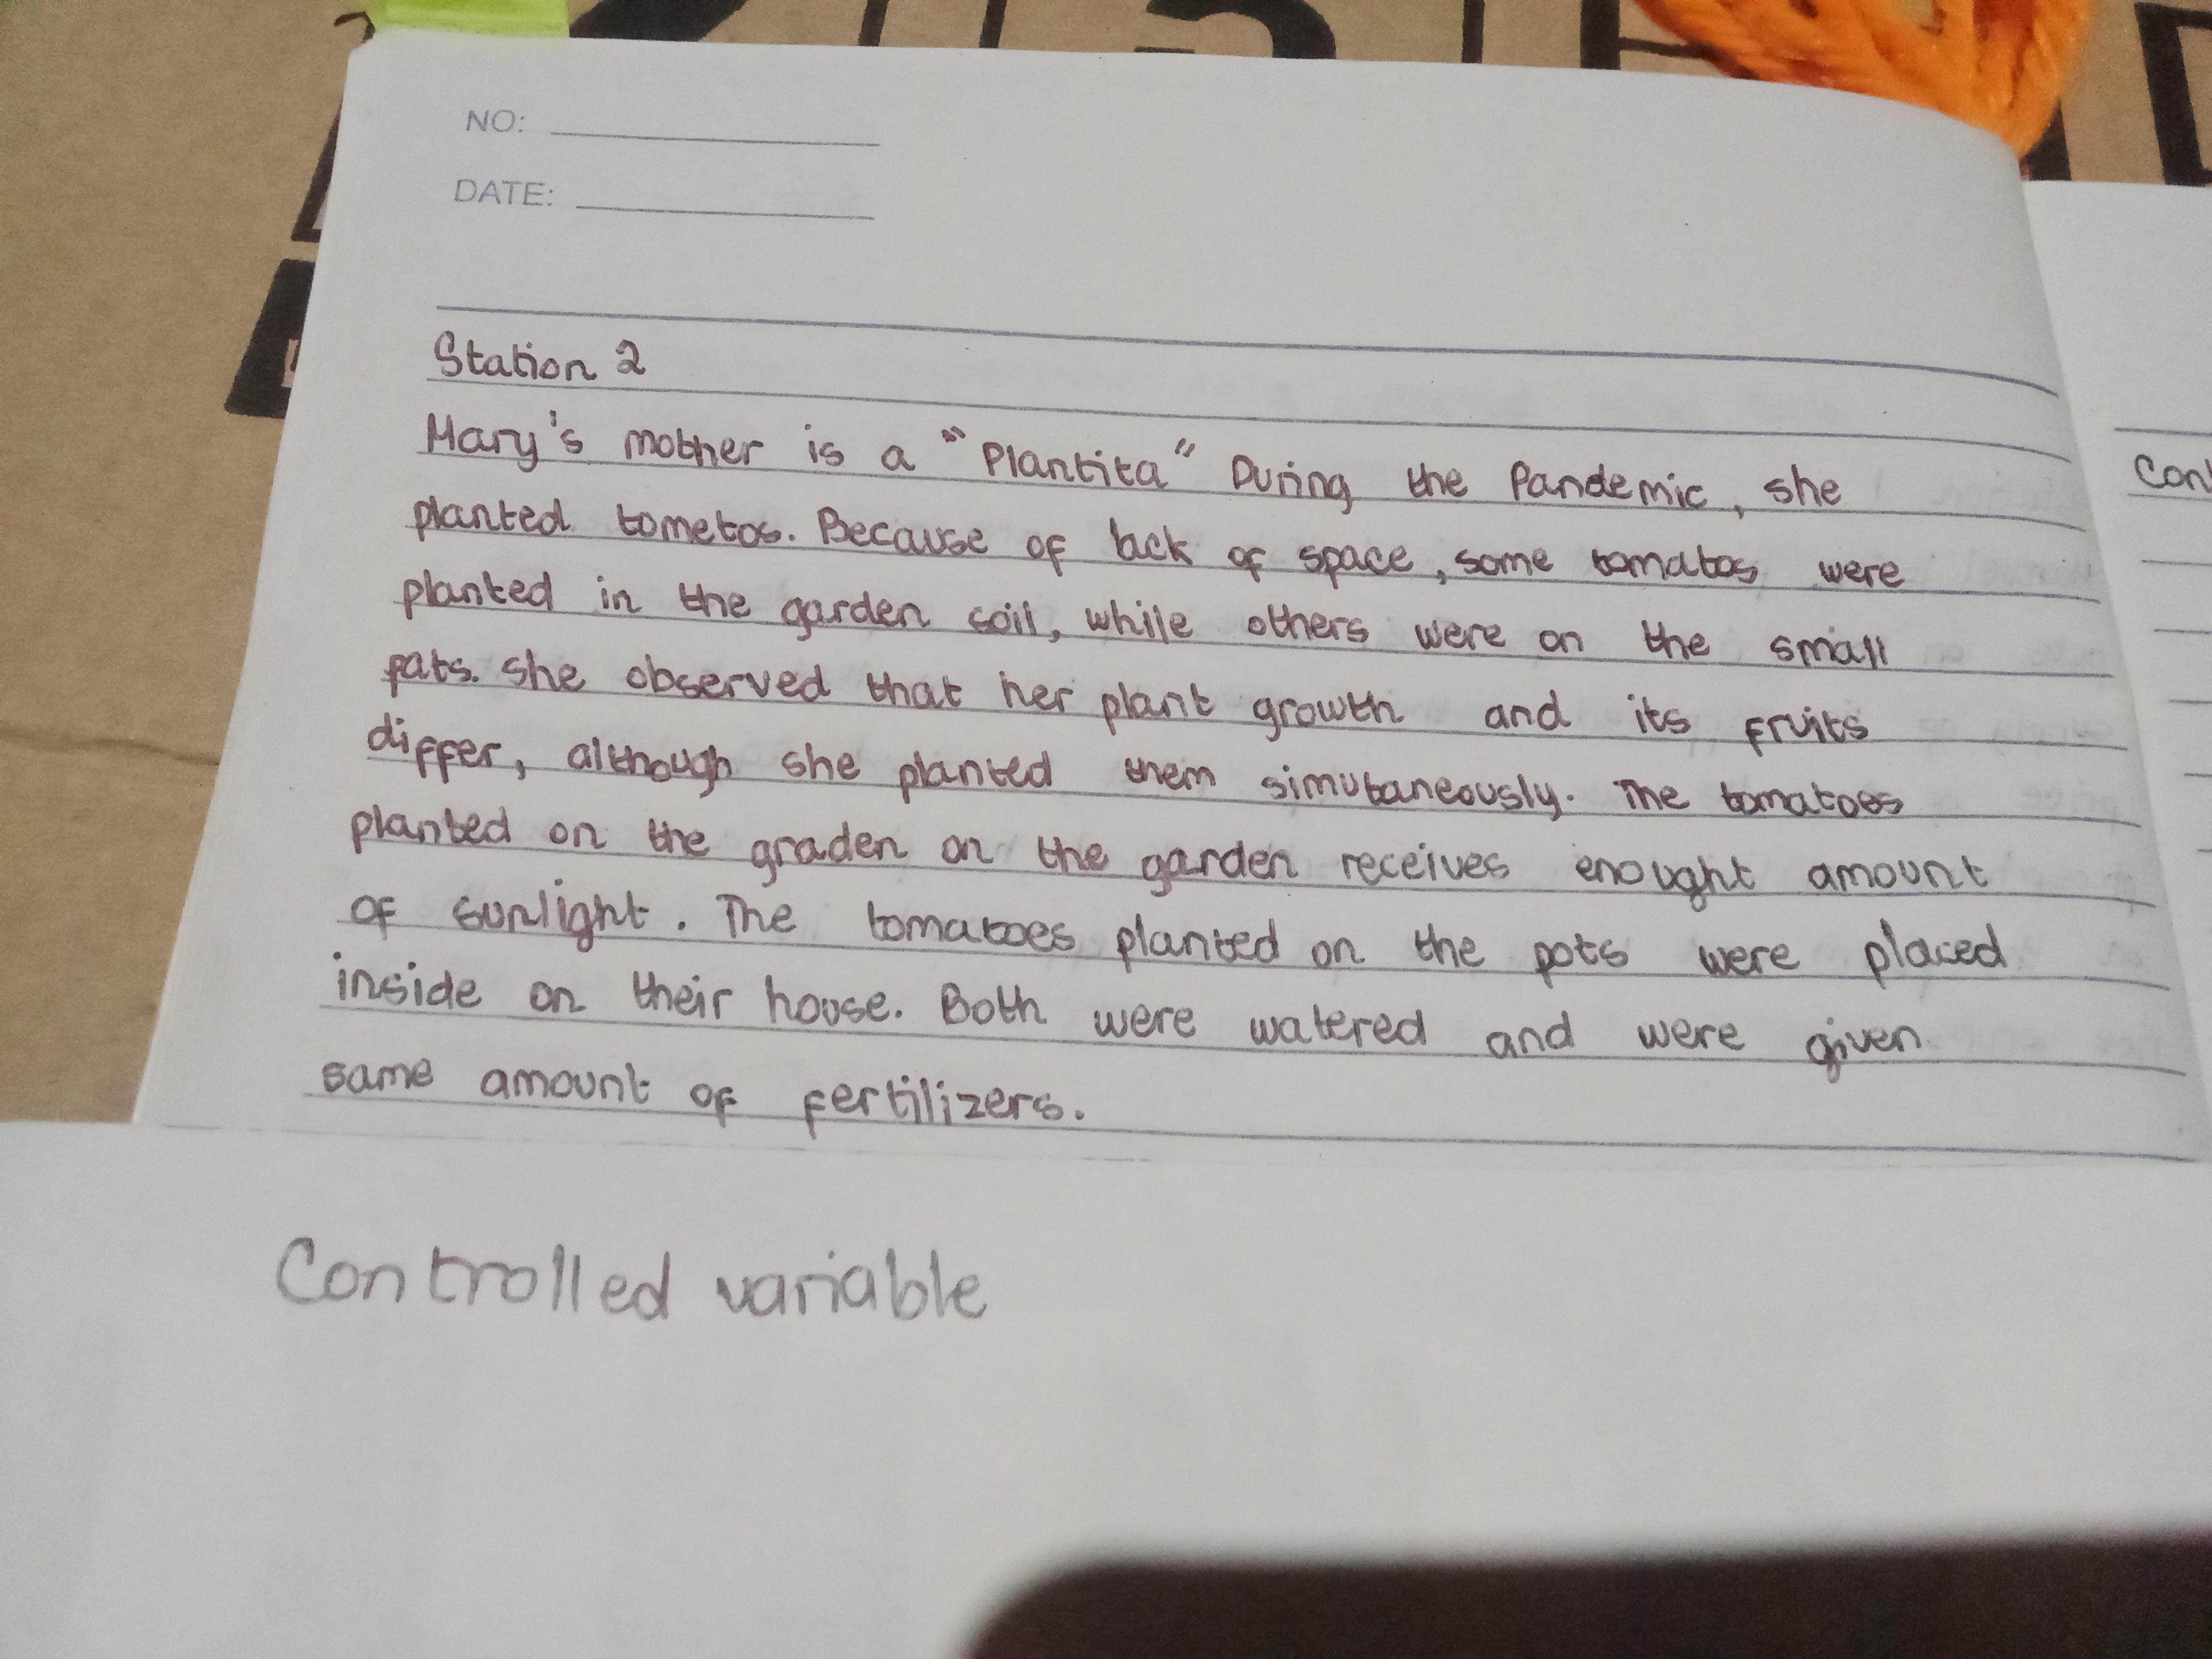 NO:
DATE:
Station 2
Mary's mother is a "Plantita" During the Pandemic, she
planted tometos. Because of lack of space, some tomatos were
planted in the garden soil, while others were on the small
pats. she observed that her plant growth and its fruits
differ, although she planted them simutaneously. The tomatoes
planted on the graden on the garden receives enought amount
of sunlight. The tomatoes planted on the pots were placed
inside on their house. Both were watered and were given
same amount of fertilizers.
Controlled variable
Con